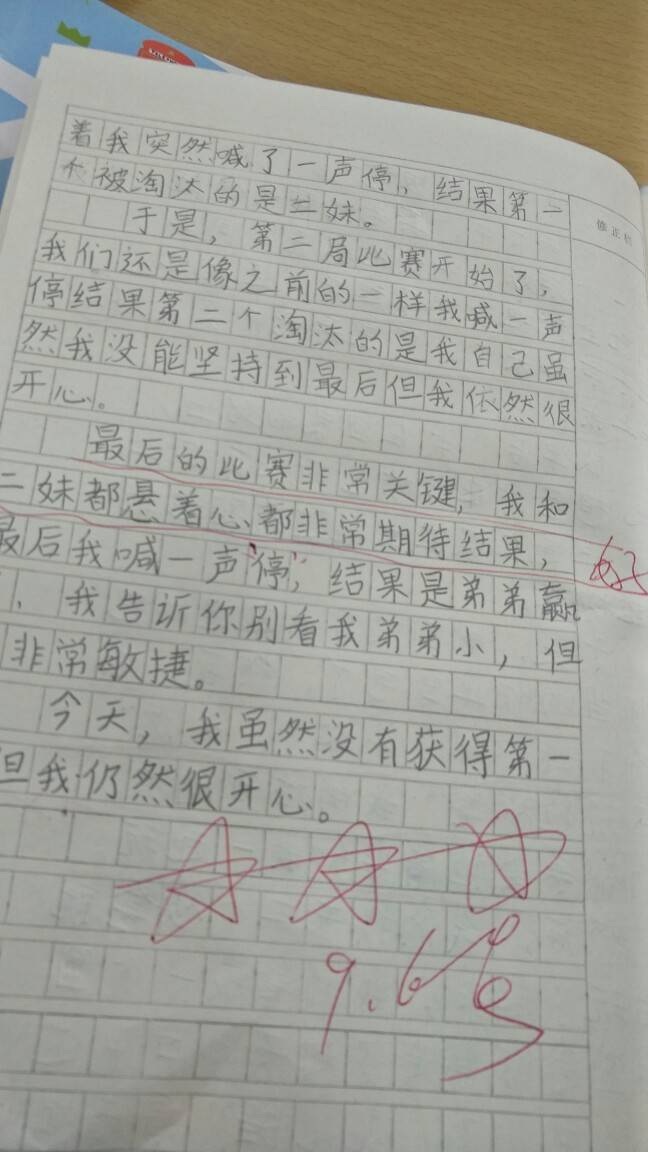 着我突然喊了一声停，结果第一
个被淘汰的是三妹。
于是，第二局比赛开始了，
我们还是像之前的一样我喊一声
停结果第二个淘汰的是我自己虽
然我没能坚持到最后但我依然很
开心。
最后的比赛非常关键，我和
二妹都悬着心都非常期待结果，
好
最后我喊一声“停”，结果是弟弟赢
，我告诉你别看我弟弟小，但
非常敏捷。
今天，我虽然没有获得第一
但我仍然很开心。
9.6
修正栏